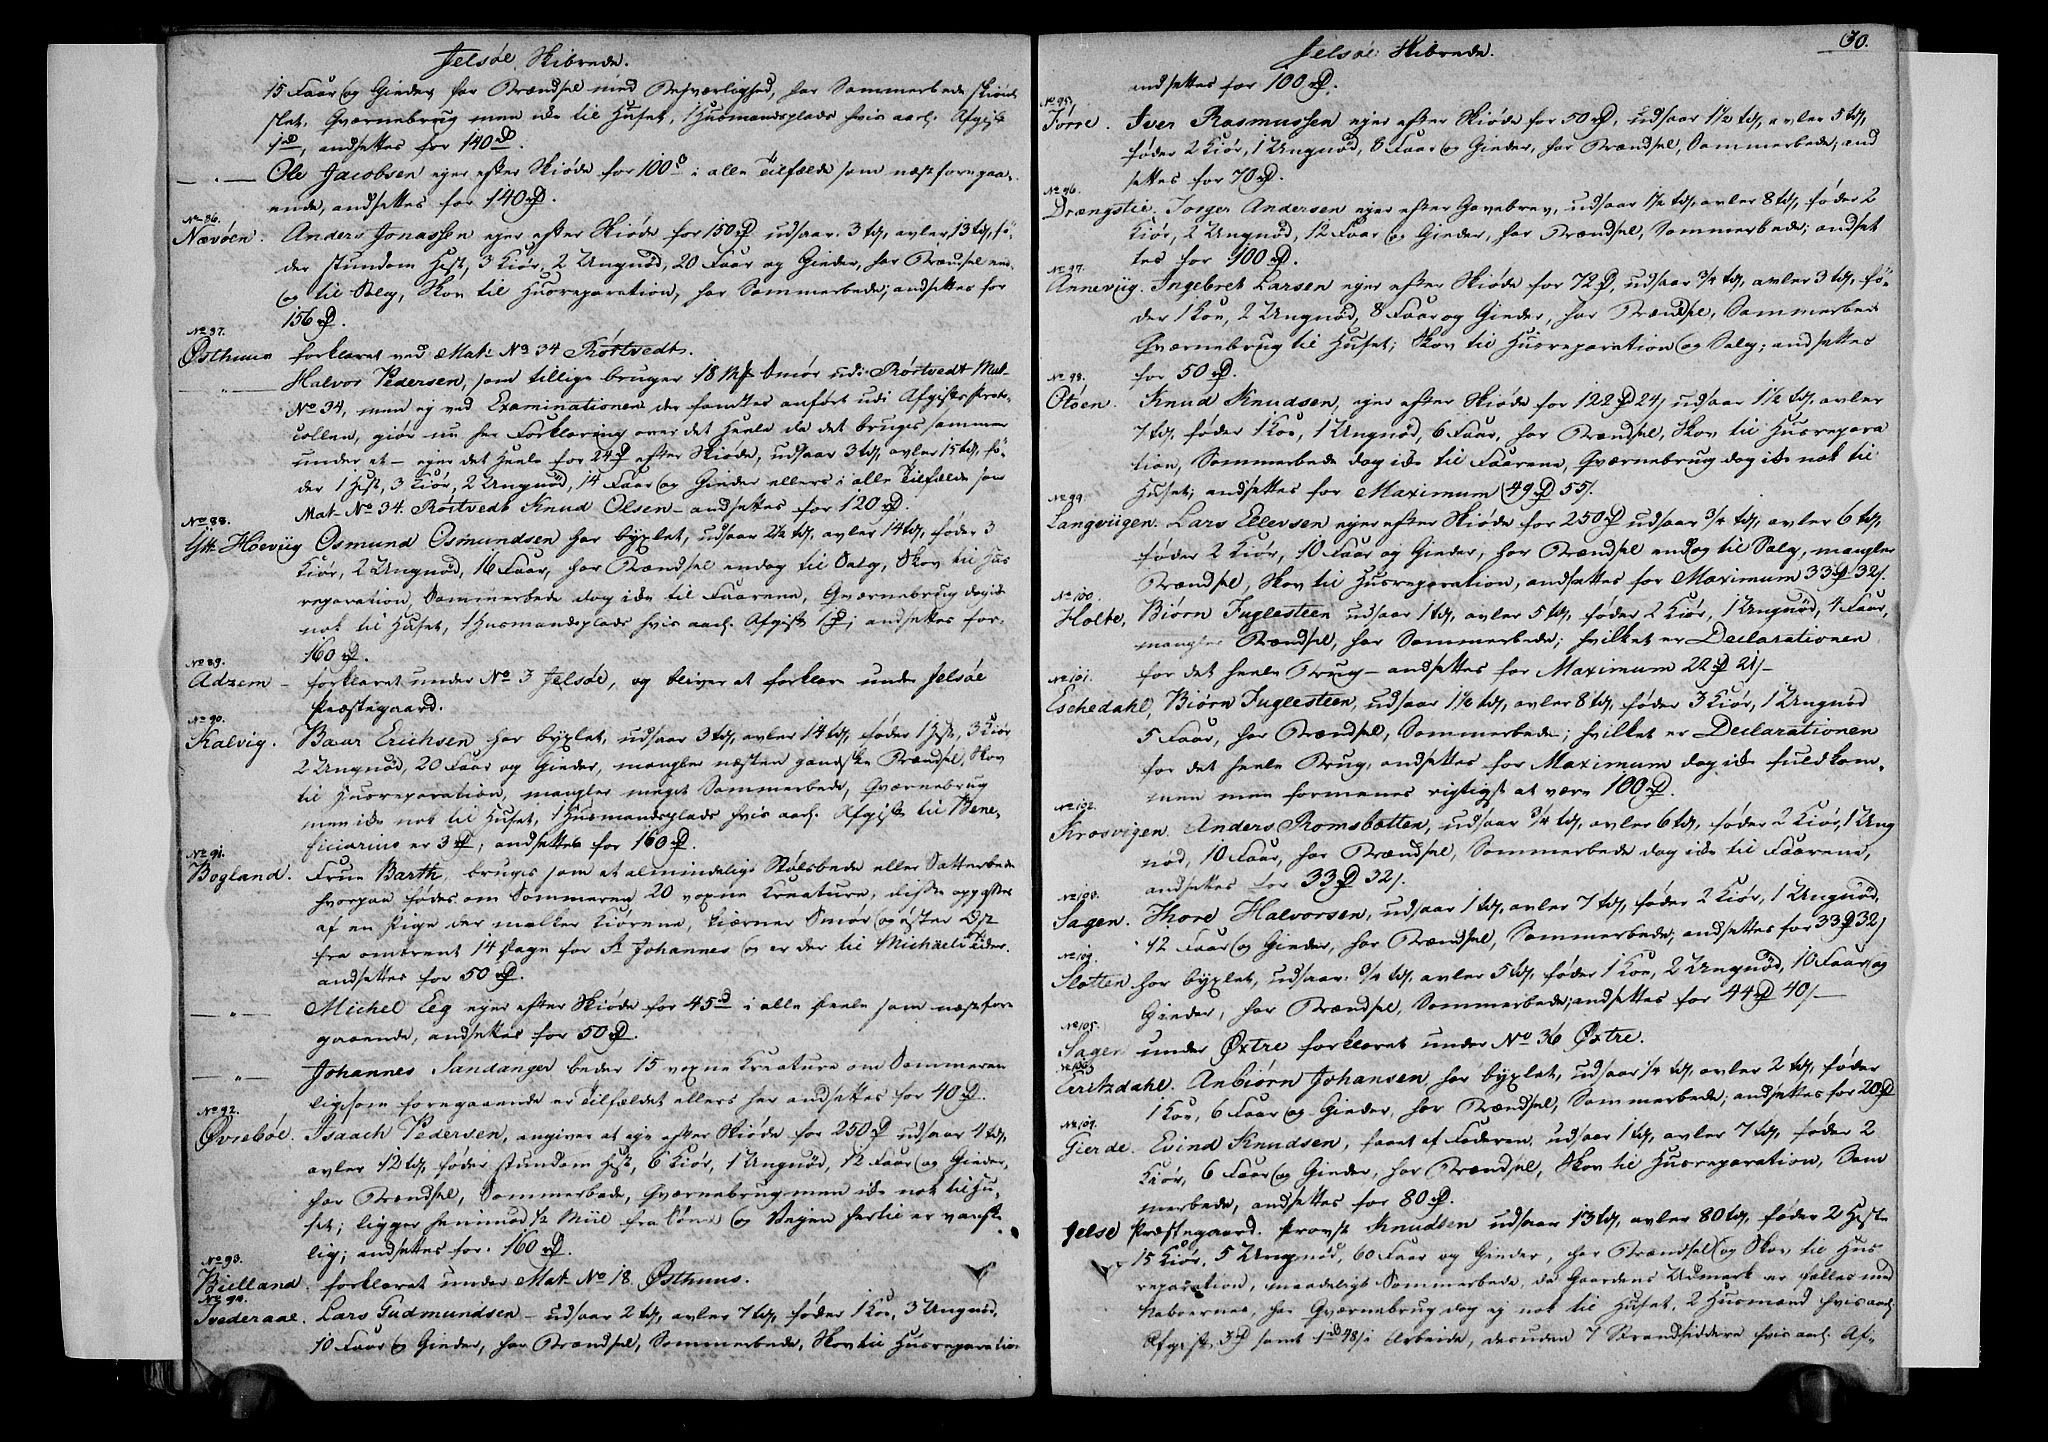 Jelsøe Skibrede.
15 Faar og Gieder har Brændsel med Besværlighed, har Sommerbede
slet, Qværnebrug men ikke til Huset, 1 Huusmandsplads hvis aarl. Afgift
1 rd, andsettes for 140 rd.
Ole Jacobsen ejer efter Skiøde for 100 rd i alle Tilfælde som næst foregaa-
ende, andsettes for 140 rd.
No 86.
Nævøen. Anders Jonassen ejer efter Skiøde for 150 rd udsaar 3 td, avler 13 td, fø-
der stundom Hest, 3 Kiør, 2 Ungnød, 20 Faar og Gieder, har Brændsel end-
og til Salg, Skov til Huusreparation, har Sommerbede; andsettes for
156 rd.
No 87.
Østhuus forklaret ved Mat: No 34 Rørtvedt.
Halvor Pedersen, som tillige bruger 18 Mk Smør udi Rørtvedt Mat-
No 34, men ej ved Examinationen der fandtes anført udi Afgifts Prot-
collen, giør nu her Forklaring over det heele da det bruges sammen
under et - ejer det heele for 24 rd efter Skiøde, udsaar 3 td, avler 15 td, fø-
der 1 Hest, 3 Kiør, 2 Ungnød, 14 Faar og Gieder ellers i alle Tilfælde som
Mat- No 34. Rørtvedt Knud Olsen - andsettes for 120 rd.
No 88.
Ytt: Høeviig Osmund Osmundsen har byxlet, udsaar 2½ td, avler 14 td, føder 3
Kiør, 2 Ungnød, 16 Faar, har Brændsel endog til Salg, Skov til Huus
reparation, Sommerbede dog ikke til Faarene, Qværnebrug dog ikke
nok til Huset, 1 Huusmandsplads hvis aarl. Afgift 1 rd; andsettes for
160 rd.
No 89.
Adzem - forklaret under No 3 Jelsøe, og bliver at forklare under Jelsøe
Præstegaard.
No 90.
Kalvig. Baar Erichsen har byxlet, udsaar 3 td, avler 14 td, føder 1 Hest, 3 Kiør
2 Ungnød, 20 Faar og Gieder, mangler næsten gandske Brændsel, Skov
til Huusreparation, mangler meget Sommerbede, Qværnebrug
men ikke nok til Huset, 1 Huusmandsplads hvis aarl. Afgift til Bene-
ficiarius er 3 rd, andsettes for 160 rd.
No 91.
Bogland. Frue Barth, bruges som et almindelig Stølsbede eller Sætterbede
hvorpaa fødes om Sommeren 20 voxne Kreature, disse opasses
af en Pige der malker Kiørene, kiærner Smør og yster Ost
fra omtrent 14 Dage for St Johannes og er der til Michaeli Tider.
andsettes for 50 rd.
Michel Eeg ejer efter Skiøde for 45 rd i alle Deele som næst fore
gaaende, andsettes for 50 rd.
Johannes Sandanger beder 15 voxne Kreature om Sommeren
ligesom foregaaende er Tilfældet ellers her andsettes for 40 rd.
No 92.
Øvrebøe. Isaach Pedersen, angiver at eje efter Skiøde for 250 rd udsaar 4 td,
avler 12 td, føder stundom Hest, 6 Kiør, 1 Ungnød, 12 Faar og Gieder,
har Brændsel, Sommerbede, Qværnebrug men ikke nok til Hu-
set; ligger henimod ½ Miil fra Søen og Vejen hertil er vansk-
lig; andsettes for 160 rd.
No 93.
Bielland. forklaret under Mat- No 18. Østhuus.
No 94.
Lars Gudmundsen - udsaar 2 td, avler 7 td, føder 1 Koe, 3 Ungnød,
10 Faar og Gieder, har Brændsel, Sommerbede, Skov til Huusreparation
60.
Jelsøe Skibrede.
andsettes for 100 rd.
No 95,
Tørre. Iver Rasmussen ejer efter Skiøde for 50 rd, udsaar 1½ td, avler 5 td,
føder 2 Kiør, 1 Ungnød, 8 Faar og Gieder, har Brændsel, Sommerbede, and
settes for 70 rd.
No 96.
Drængstie. Torger Andersen ejer efter Gavebrev, udsaar 1½ td, avler 8 td, føder 2
Kiør, 2 Ungnød, 12 Faar og Gieder, har Brændsel, Sommerbede; andset
tes for 100 rd.
No 97.
Annevüg. Ingebret Larsen ejer efter Skiøde for 72 rd, udsaar ¾ td, avler 3 td, fø-
der 1 Koe, 2 Ungnød, 8 Faar og Gieder, har Brændsel, Sommerbede
Qværnebrug til Huset; Skov til Huusreparation og Salg; andsettes
for 50 rd.
No 98.
Otøen. Knud Knudsen, ejer efter Skiøde for 122 rd 24 s, udsaar 1½ td, avler
7 td, føder 1 Koe, 1 Ungnød, 6 Faar, har Brændsel, Skov til Huusrepara
tion, Sommerbede dog ikke til Faarene, Qværnebrug dog ikke nok til
Huset; andsettes for Maximum 49 rd 55 s.
No 99.
Langvügen. Lars Ellevsen ejer efter Skiøde for 250 rd udsaar ¾ td, avler 6 td,
føder 2 Kiør, 10 Faar og Gieder, har Brændsel endog til Salg, mangler
Brændsel, Skov til Huusreparation, andsættes for Maximum 33 rd 32 s.
No 100.
Holte, Biørn Fuglesteen udsaar 1 td, avler 5 td, føder 2 Kiør, 1 Ungnød, 4 Faar,
mangler Brændsel, har Sommerbede; hvilket er Declarationen
for det heele Brug - andsettes for Maximum 22 rd 21 s -
No 101.
Eschedahl, Biørn Fuglesteen, udsaar 1½ td, avler 8 td, føder 3 Kiør, 1 Ungnød
5 Faar, har Brændsel, Sommerbede; hvilket er Declarationen
for det heele Brug, andsettes for Maximum dog ikke fuldkom-
men men formenes rigtigst at være 100 rd.
No 102.
Krosvigen. Anders Romsbotten, udsaar ¾ td, avler 6 td, føder 2 Kiør, 1 Ung
nød, 10 Faar, har Brændsel, Sommerbede dog ikke til Faarene,
andsettes for 33 rd 32 s.
No 103.
Sagen. Thore Halvorsen, udsaar 1 td, avler 7 td, føder 2 Kiør, 1 Ungnød,
12 Faar og Gieder, har Brændsel, Sommerbede, andsettes for 33 rd 32 s
No 104.
Slotten har byxlet, udsaar ¾ td, avler 5 td, føder 1 Koe, 2 Ungnød, 10 Faar og
Gieder, har Brændsel, Sommerbede; andsettes for 44 rd 40 s -
No 105.
Sagen under Øxtre forklaret under No 36 Øxtre.
No 106
Anbiørn Johansen, har byxlet, udsaar ¼ td, avler 2 td, føder
1 Koe, 6 Faar og Gieder, har Brændsel, Sommerbede; andsettes for 20 rd
No 107.
Gierde. Evind Knudsen, faaet af Faderen, udsaar 1 td, avler 7 td, føder 2
Kiør, 6 Faar og Gieder, har Brændsel, Skov til Huusreparation, Som
merbede, andsettes for 80 rd.
Jelse Præstegaard. Provst Knudsen udsaar 13 td, avler 80 td, føder 2 Heste
15 Kiør, 5 Ungnød, 60 Faar og Gieder, har Brændsel og Skov til Huus
reparation, maadeligt Sommerbede, da Gaardens Udmark er fælles med
Naboernes, har Qværnebrug dog ej nok til Huset, 2 Huusmænd hvis aarl.
Afgift 3 rd samt 1 rd 48 s i Arbeide, desuden 7 Strandsiddere hvis aarl: Af-